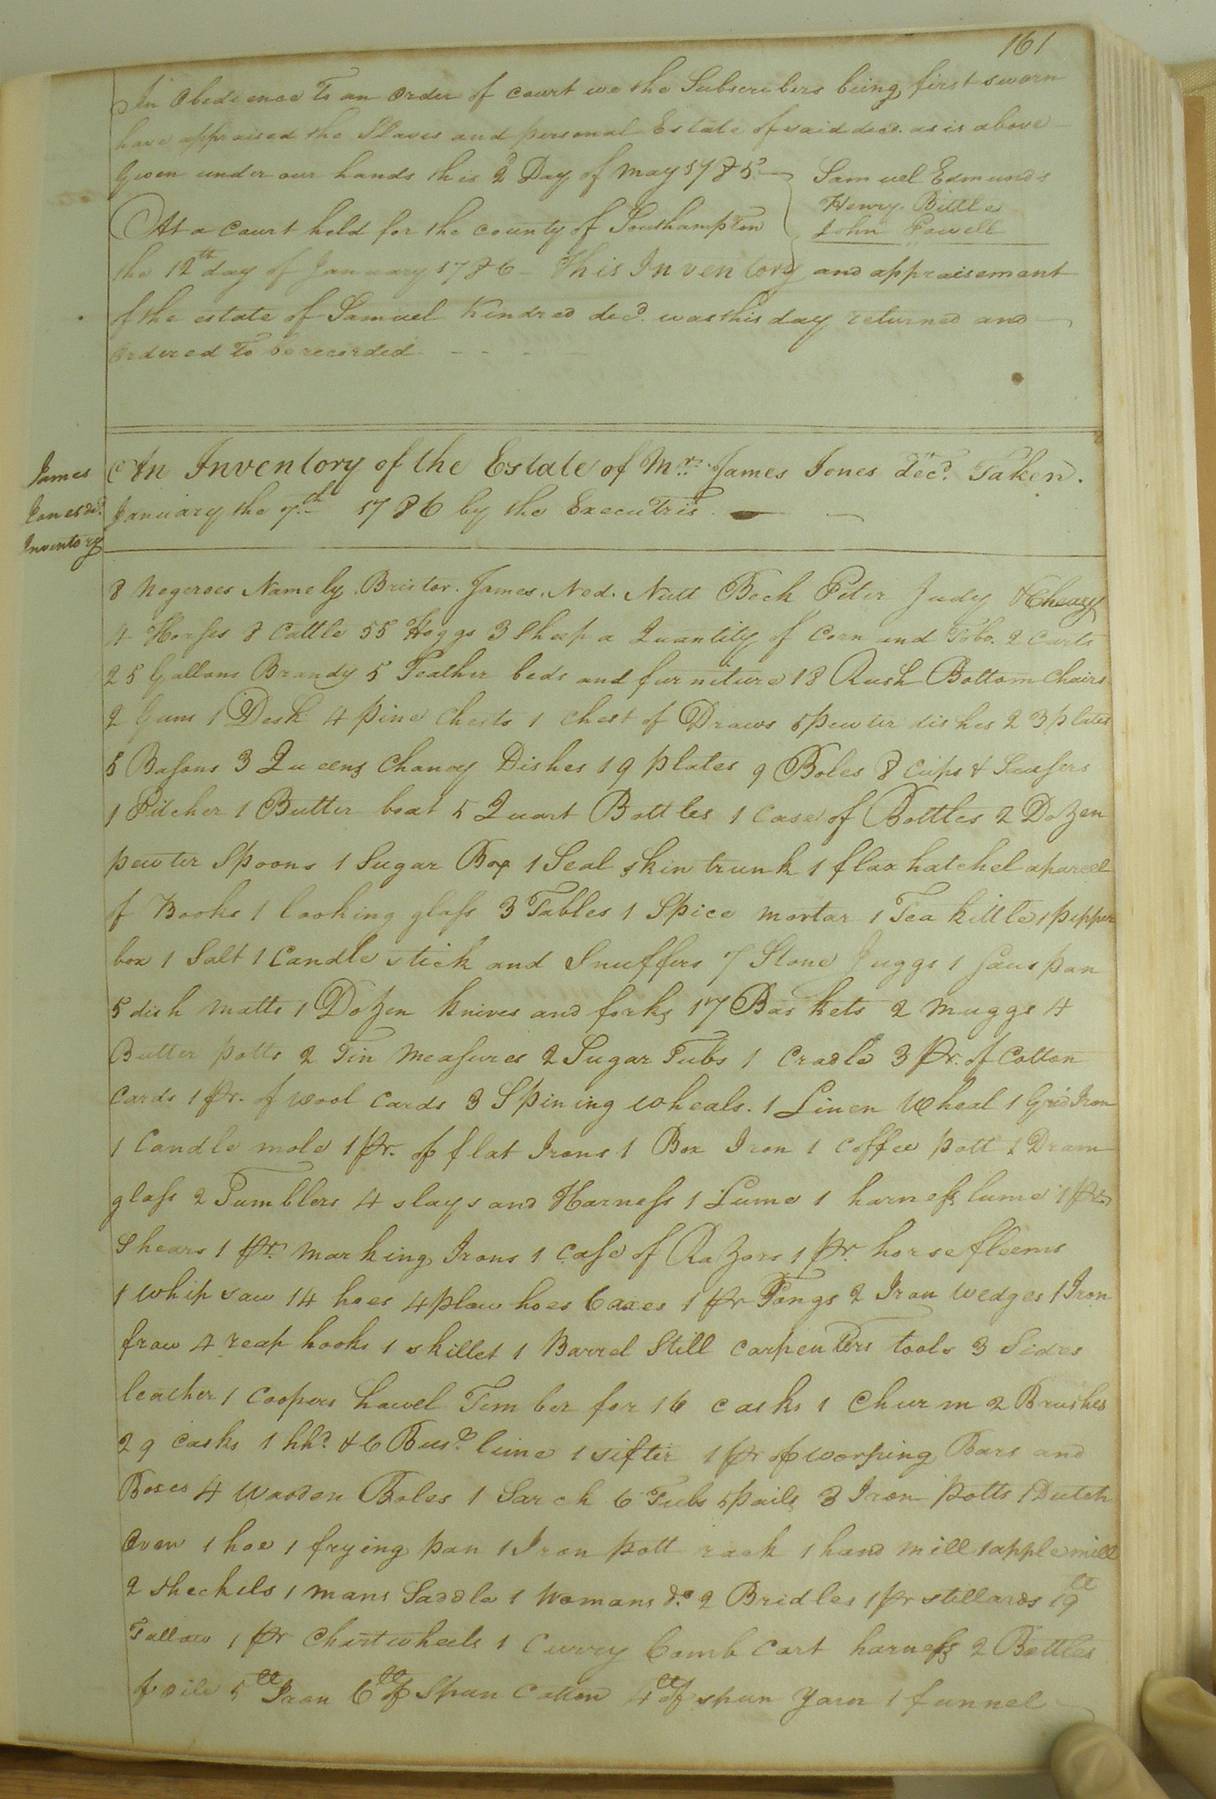 161
In Obedience To an order of court we the Subscribers being first sworn
have appraised the Slaves and personal Estate of said decd. as is above
Given under our hands this 2d Day of may 1785
Samuel Edmunds
Henry Bittle
John Powell
At a Court held for the county of Southampton
the 12th day of January 1786 - This Inventory and appraisement
of the estate of Samuel Kindred decd. was this day returned and
ordered To be recorded - - -
James
Jones decd.
Inventory
An Inventory of the Estate of Mr. James Jones decd. Taken.
January the 7th 1786 by the Executris
8 Negeroes Namely. Bristor. James. Ned. Nutt Beck Peter Judy & Cheary
4 Horses 8 Cattle 55 Hoggs 3 Sheep a Quantity of Corn and Tobo. 2 Carts
25 Gallons Brandy 5 Feather beds and furniture 18 Rush Bottom Chairs
2 Guns 1 Desk 4 pine Chests 1 chest of Draws 5 pewter dishes 23 plates
5 Basons 3 Queens Chaney Dishes 19 plates 9 Boles 8 Cups & Sausers
1 Pitcher 1 Butter boat 5 Quart Bottles 1 Case of Bottles 2 Dozen
pewter Spoons 1 Sugar Box 1 Seal skin trunk 1 flax hatchel a parcel
of Books 1 looking glass 3 Tables 1 Spice mortar 1 Tea kittle 1 pepper
box 1 Salt 1 Candle stick and Snuffers 7 Stone Juggs 1 saus pan
5 dish matts 1 Dozen knives and forks 17 Baskets 2 muggs 4
Butter potts 2 Tin measures 2 Sugar Tubs 1 Cradle 3 pr. of Cotton
Cards 1 pr. of wool Cards 3 Spining wheals. 1 Linen Wheal 1 Grid Iron
1 Candle mole 1 pr. of flat Irons 1 Box Iron 1 Coffee pott 1 Dram
glass 2 Tumblers 4 slays and Harness 1 Lume 1 harness lume 1 pr.
Shears 1 pr. marking Irons 1 case of Razors 1 pr horse fleems
1 whip saw 14 hoes 4 plow hoes 6 axes 1 pr Tongs 2 Iron wedges 1 Iron
frow 4 reap hooks 1 skillet 1 Barrel Still carpenters tools 3 Sides
leather 1 Coopers howel Timber for 16 casks 1 Churm 2 Brushes
29 casks 1 hhd. & 6 Busd. lime 1 sifter 1 pr of worping Bars and
Boxes 4 wooden Boles 1 Sarch 6 Tubs 5 pails 3 Iron potts 1 Dutch
Oven 1 hoe 1 frying pan 1 Iron pott rack 1 hand mill 1 apple mill
2 sheckels 1 mans Saddle 1 Womans do. 2 Bridles 1 pr stillards 19 lb
Tallow 1 pr Chart wheels 1 Curry Comb Cart harness 2 Bottles
of oile 5 lb Iron 6 lb of Spun Cotton 4 lb of spun yarn 1 funnel